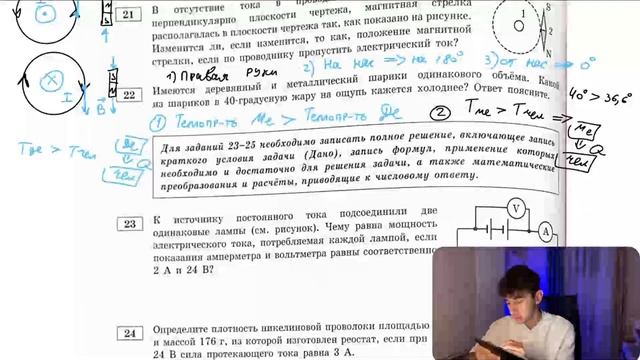 21
В отсутствие тока в
перпендикулярно плоскости чертежа, магнитная стрелка
располагалась в плоскости чертежа так, как показано на рисунке.
Изменится ли, если изменится, то как, положение магнитной
стрелки, если по проводнику пропустить электрический ток?
1
S
2
N
4
I
B
1) Правая руки
2) На нас => на 180°
3) от нас => 0°
22
Имеются деревянный и металлический шарики одинакового объёма. Какой
из шариков в 40-градусную жару на ощупь кажется холоднее? Ответ поясните.
40° > 36,6°
① Теплопр-ть Ме > Теплопр-ть Де
② Тме > Тчел =>
Ме
Q
чел
Тде > Тчел
Де
Q
чел
Для заданий 23–25 необходимо записать полное решение, включающее запись
краткого условия задачи (Дано), запись формул, применение которых
необходимо и достаточно для решения задачи, а также математические
преобразования и расчёты, приводящие к числовому ответу.
23
К источнику постоянного тока подсоединили две
одинаковые лампы (см. рисунок). Чему равна мощность
электрического тока, потребляемая каждой лампой, если
показания амперметра и вольтметра равны соответственно
2 А и 24 В?
V
A
24
Определите плотность никелиновой проволоки площадью
и массой 176 г, из которой изготовлен реостат, если при
24 В сила протекающего тока равна 3 А.